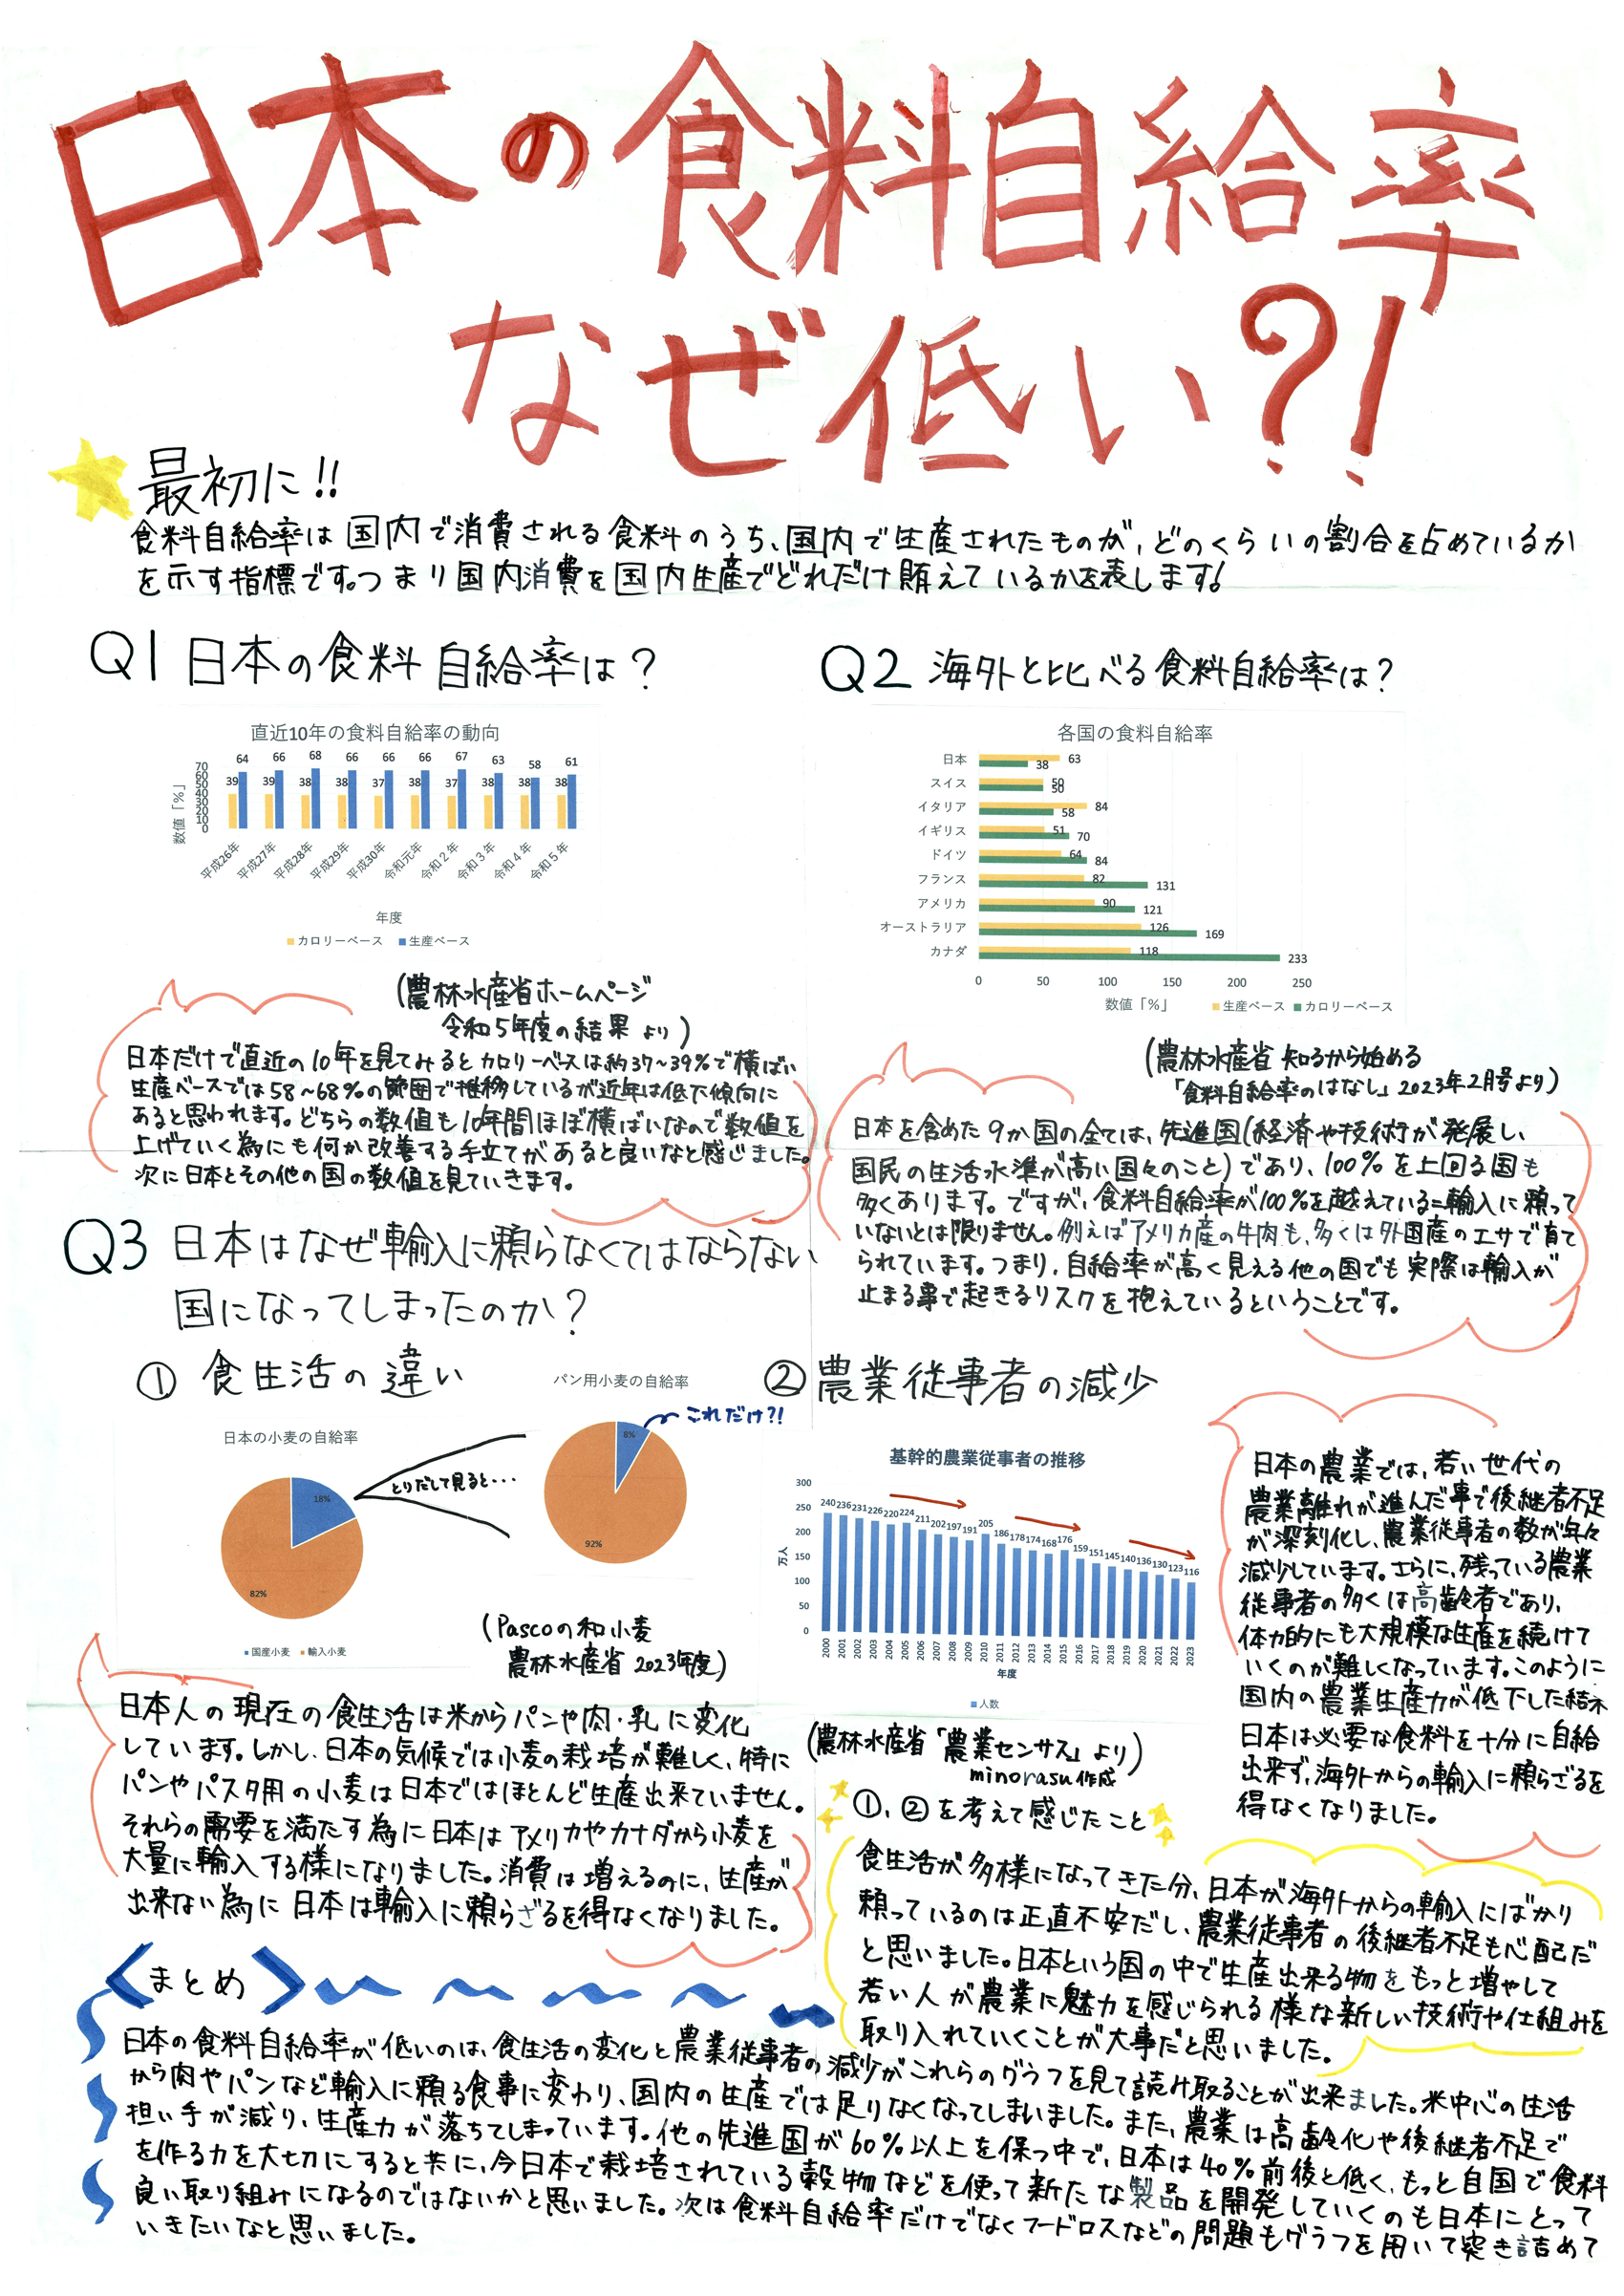 日本の食料自給率
なぜ低い?!
最初に!!
食料自給率は国内で消費される食料のうち、国内で生産されたものが、どのくらいの割合を占めているか
を示す指標です。つまり国内消費を国内生産でどれだけ賄えているかを表します!
Q1 日本の食料自給率は?
直近10年の食料自給率の動向
数値「%」
70
60
50
40
30
20
10
0
39 64
39 66
38 68
38 66
37 66
38 66
37 67
38 63
38 58
38 61
平成26年 平成27年 平成28年 平成29年 平成30年 令和元年 令和2年 令和3年 令和4年 令和5年
年度
カロリーベース 生産ベース
(農林水産省ホームページ
令和5年度の結果 より)
日本だけで直近の10年を見てみるとカロリーベースは約37~39%で横ばい
生産ベースでは58~68%の範囲で推移しているが近年は低下傾向に
あると思われます。どちらの数値も10年間ほぼ横ばいなので数値を
上げていく為にも何か改善する手立てがあると良いなと感じました。
次に日本とその他の国の数値を見ていきます。
Q2 海外と比べる食料自給率は?
各国の食料自給率
日本 63 38
スイス 50 50
イタリア 84 58
イギリス 51 70
ドイツ 64 84
フランス 82 131
アメリカ 90 121
オーストラリア 126 169
カナダ 118 233
0 50 100 150 200 250
数値「%」
生産ベース カロリーベース
(農林水産省 知るから始める
「食料自給率のはなし」2023年2月号より)
日本を含めた9か国の全ては、先進国(経済や技術が発展し、
国民の生活水準が高い国々のこと)であり、100%を上回る国も
多くあります。ですが、食料自給率が100%を越えている=輸入に頼って
いないとは限りません。例えばアメリカ産の牛肉も、多くは外国産のエサで育て
られています。つまり、自給率が高く見える他の国でも実際は輸入が
止まる事で起きるリスクを抱えているということです。
Q3 日本はなぜ輸入に頼らなくてはならない
国になってしまったのか?
① 食生活の違い
日本の小麦の自給率
18%
82%
国産小麦 輸入小麦
とりだして見ると・・・
パン用小麦の自給率
これだけ?!
8%
92%
(Pascoの和小麦
農林水産省 2023年度)
日本人の現在の食生活は米からパンや肉・乳に変化
しています。しかし、日本の気候では小麦の栽培が難しく、特に
パンやパスタ用の小麦は日本ではほとんど生産出来ていません。
それらの需要を満たす為に日本はアメリカやカナダから小麦を
大量に輸入する様になりました。消費は増えるのに、生産が
出来ない為に日本は輸入に頼らざるを得なくなりました。
② 農業従事者の減少
基幹的農業従事者の推移
万人
300
250
200
150
100
50
0
240 236 231 226 220 224 211 202 197 191 205 186 178 174 168 176 159 151 145 140 136 130 123 116
2000 2001 2002 2003 2004 2005 2006 2007 2008 2009 2010 2011 2012 2013 2014 2015 2016 2017 2018 2019 2020 2021 2022 2023
年度
人数
(農林水産省「農業センサス」より)
minorasu作成
日本の農業では、若い世代の
農業離れが進んだ事で後継者不足
が深刻化し、農業従事者の数が年々
減少しています。さらに、残っている農業
従事者の多くは高齢者であり、
体力的にも大規模な生産を続けて
いくのが難しくなっています。このように
国内の農業生産力が低下した結果
日本は必要な食料を十分に自給
出来ず、海外からの輸入に頼らざるを
得なくなりました。
①、②を考えて感じたこと
食生活が多様になってきた分、日本が海外からの輸入にばかり
頼っているのは正直不安だし、農業従事者の後継者不足も心配だ
と思いました。日本という国の中で生産出来る物をもっと増やして
若い人が農業に魅力を感じられる様な新しい技術や仕組みを
取り入れていくことが大事だと思いました。
<まとめ>
日本の食料自給率が低いのは、食生活の変化と農業従事者の減少がこれらのグラフを見て読み取ることが出来ました。米中心の生活
から肉やパンなど輸入に頼る食事に変わり、国内の生産では足りなくなってしまいました。また、農業は高齢化や後継者不足で
担い手が減り、生産力が落ちてしまっています。他の先進国が60%以上を保つ中で、日本は40%前後と低く、もっと自国で食料
を作る力を大切にすると共に、今日本で栽培されている穀物などを使って新たな製品を開発していくのも日本にとって
良い取り組みになるのではないかと思いました。次は食料自給率だけでなくフードロスなどの問題もグラフを用いて突き詰めて
いきたいなと思いました。